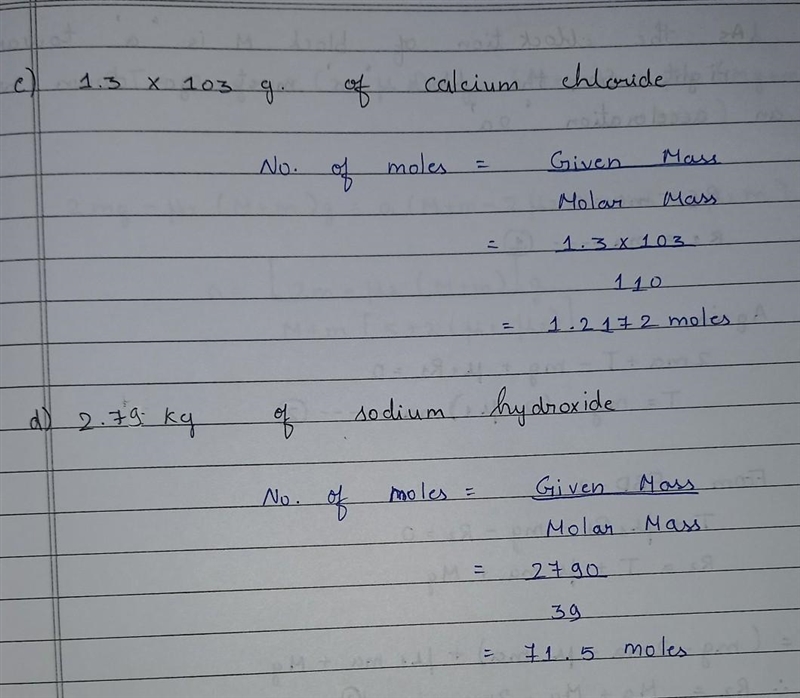 c) 1.3 × 103 g. of calcium chloride
No. of moles = Given Mass
Molar Mass
= 1.3 × 103
110
= 1.2172 moles.
d) 2.79 kg of sodium hydroxide
No. of moles = Given Mass
Molar Mass
= 2790
39
= 71.5 moles